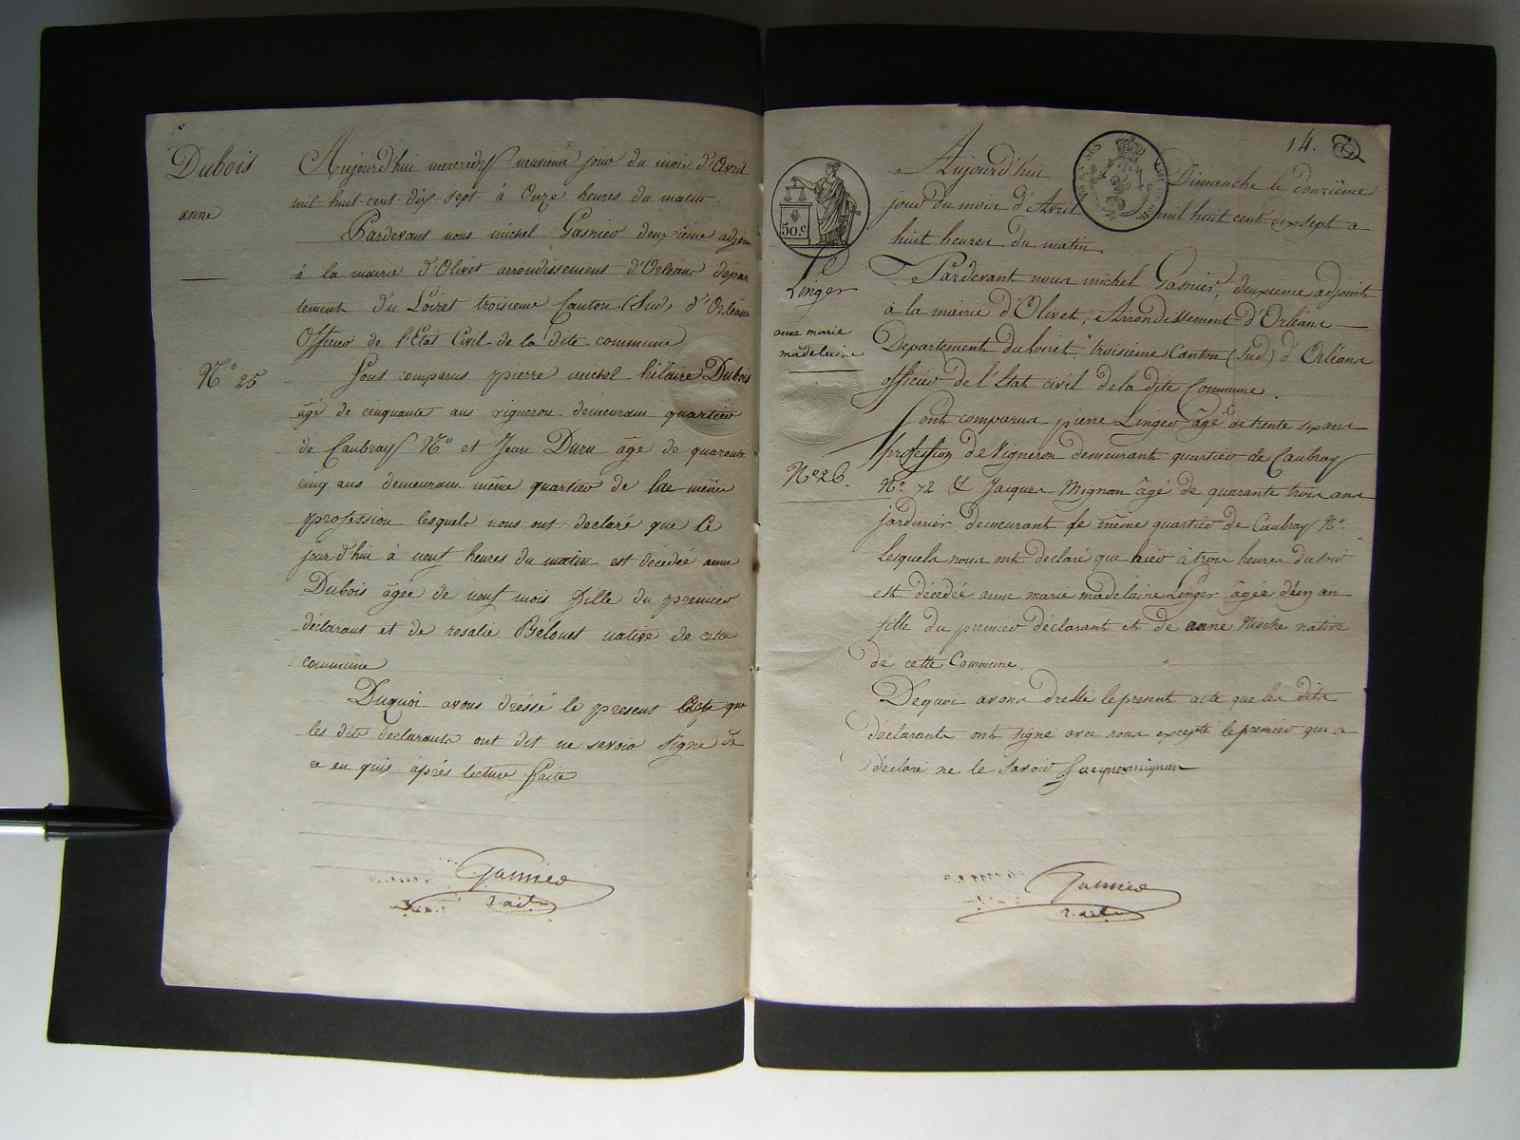 Dubois
anne
Aujourd'hui mercredy neuvieme jour du mois d'Avril
mil huit cent dix sept à Onze heures du matin
Pardevant nous michel Gasnier deuxième adjoin
à la mairie d'Olivet arrondissement d'Orléans dépar
tement du Loiret troisieme Canton (Sud) d'Orléans
Officier de l'Etat Civil de la dite commune
N° 25
Sont comparus pierre michel hilaire Dubois
âgé de cinquante ans vigneron demeurant quartier
de Caubray N° et Jean Duru âgé de quarante
cinq ans demeurant même quartier de la même
profession lesquels nous ont declaré que ce
jour d'hui à neuf heures du matin est décédé anne
Dubois âgée de neuf mois fille du premier
déclarant et de rosalie Belouet native de cette
commune
Duquoi avons dréssé le present acte que
les dits declarants ont dit ne savoir signé de
ce enquis après lecture faite
Gasnier
14.
50.c
Linger
anne marie
madelaine
Aujourd'hui Dimanche le douzième
jour du mois d'Avril mil huit cent dix sept a
huit heures du matin
Pardevant nous michel Gasnier, deuxieme adjoint
à la mairie d'Olivet, Arrondissement d'Orléans
Departement du loiret, troisieme Canton (Sud) d'Orléans
officier de l'Etat civil de la dite Commune.
Sont comparus pierre Linger âgé de trente six ans
N° 26.
profession de Vigneron demeurant quartier de Caubray
N° 72 & Jacques Mignan âgé de quarante trois ans
jardinier demeurant le même quartier de Caubray N°
Lesquels nous ont declaré que hier à trois heures du soir
est décédée anne marie madelaine Linger âgée d'un an
fille du premier déclarant et de anne native
de cette Commune.
Dequoi avons dressé le present acte que les dits
déclarants ont signé avec nous excepté le premier qui a
déclaré ne le savoir Jacquesmignan
Gasnier